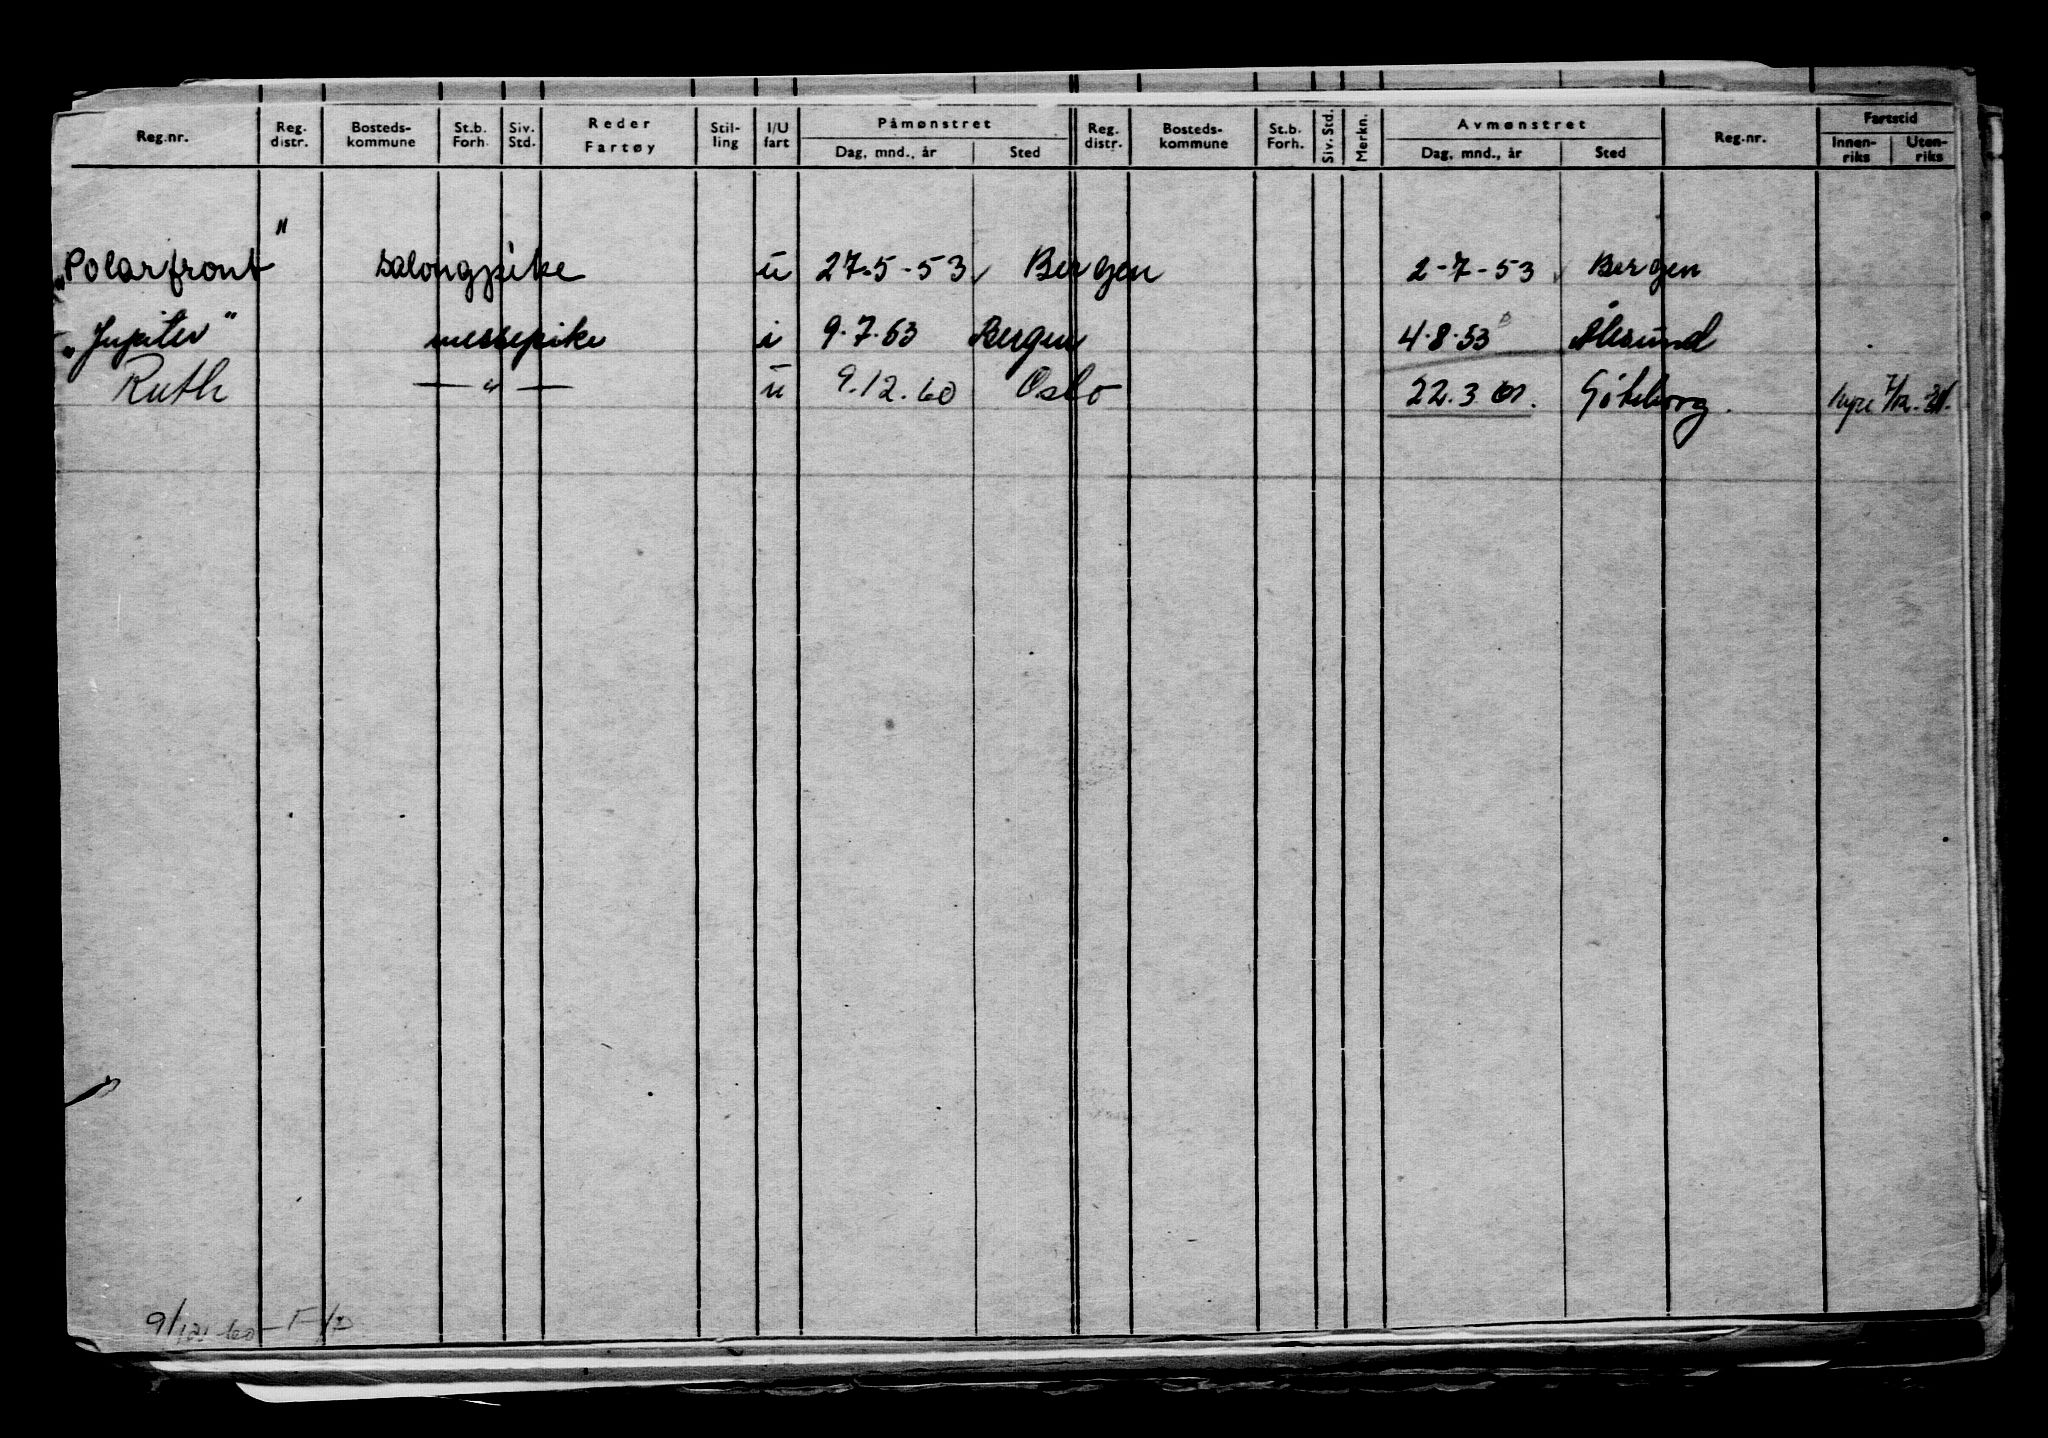 Reg.nr. Reg. distr. Bosteds-kommune St.b. Forh. Siv. Std. Reder Fartøy Stil-ling I/U fart Påmønstret Dag, mnd., år Sted Reg. distr. Bosteds-kommune St.b. Forh. Siv. Std. Merkn. Avmønstret Dag, mnd., år Sted Reg.nr. Fartstid Innen-riks Uten-riks
"Polarfront" salongpike u 27-5-53 Bergen 2-7-53 Bergen
"Jupiter" messepike i 9.7.53 Bergen 4.8.53 Ålesund
Ruth —"— u 9.12.60 Oslo 22.3 61. Göteborg. hyre 7/12
9/12 60